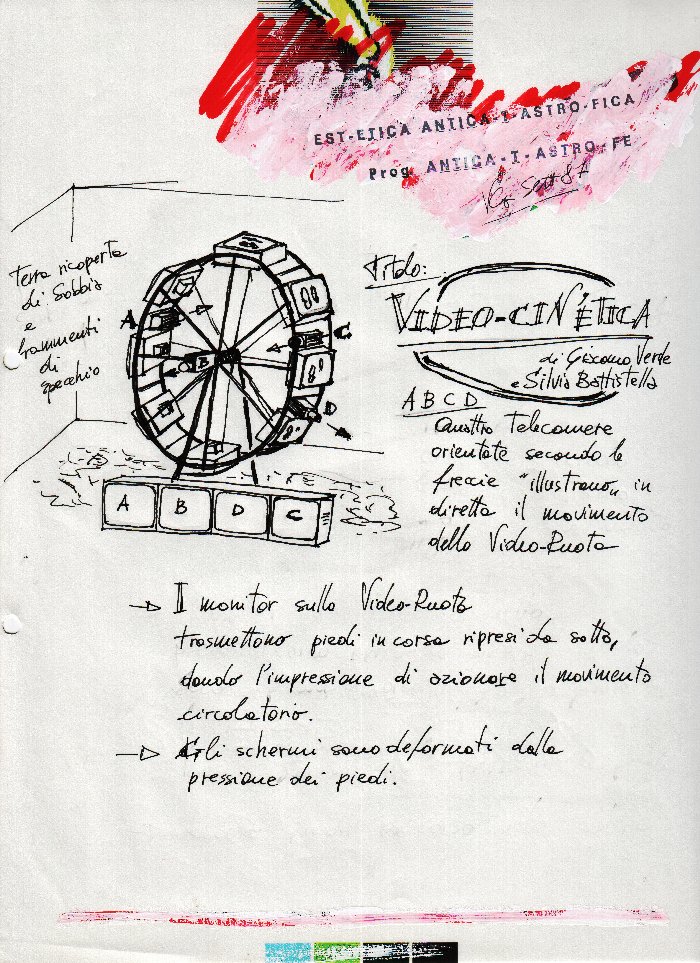 EST-ETICA ANTICA-T-ASTRO-FICA
Prog. ANTICA-T-ASTRO-FE
Sett 87
Terra ricoperta
di Sabbia
e
frammenti
di
specchio
Titolo:
VIDEO-CINÉTICA
di Giacomo Verde
e Silvia Battistella
A B C D
Quattro Telecamere
orientate secondo le
frecie "illustrano" in
diretta il movimento
della Video-Ruota
A
B
C
D
A B D C
I monitor sulla Video-Ruota
trasmettono piedi in corsa ripresi da sotto,
dando l'impressione di azionare il movimento
circolatorio.
Gli schermi sono deformati dalla
pressione dei piedi.